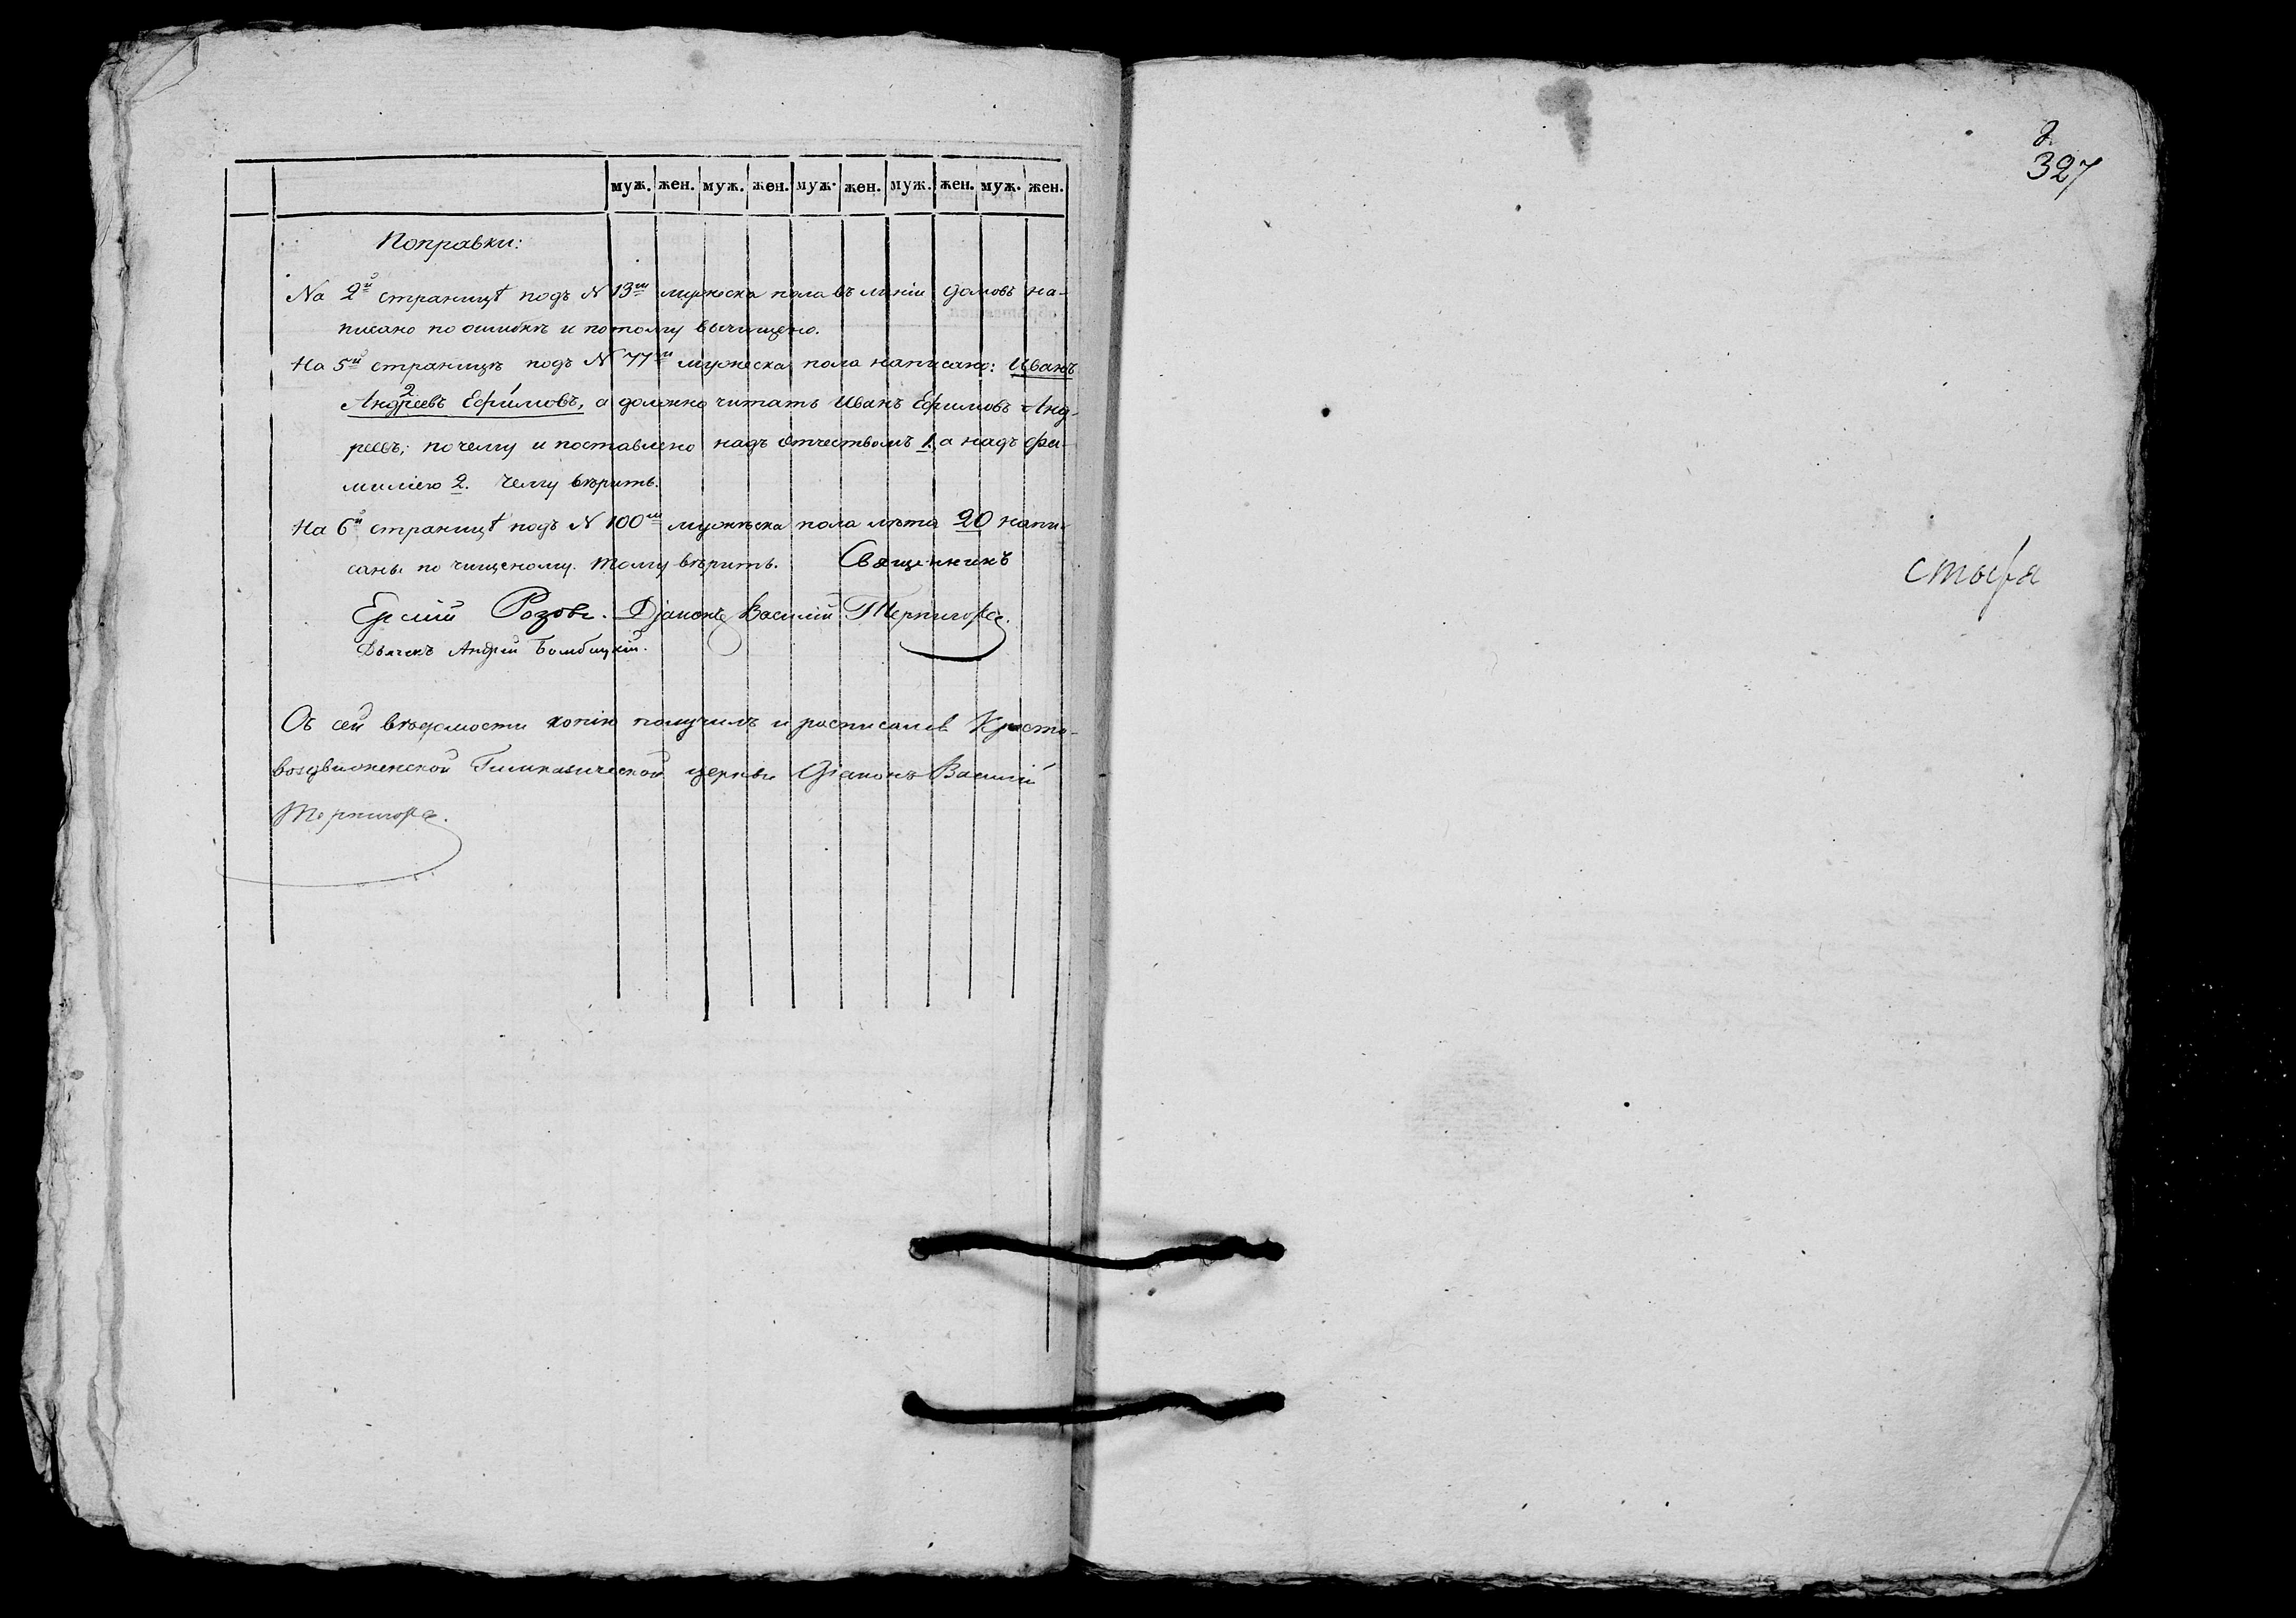 муж. жен. муж. жен. муж. жен. муж. жен. муж. жен.
Поправки:
На 2й страницѣ подъ N 13м мужеска пола въ линіи домовъ на-
писано по ошибкѣ и потому вычищено.
На 5й страницѣ подъ N 77м мужеска пола написано: Иванъ
2 1
Андреевъ Ефимовъ, а должно читать Иванъ Ефимовъ Анд-
реевъ; почему и поставлено надъ отчествомъ 1. а надъ фа-
миліею 2. чему вѣрить.
На 6й страницѣ подъ N 100м мужеска пола лѣта 20 напи-
саны по чищеному. тому вѣрить. Священникъ
Розовъ. Діаконъ Василій Терпигоре
Дьячекъ Андрей
Съ сей вѣдомости копію получилъ и росписался Кресто-
воздвиженской Гимназической церкви Діаконъ Василій
327